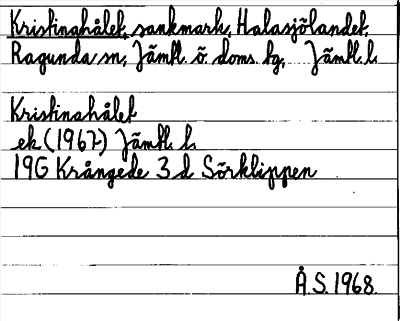 Kristinahålet, sankmark, Halasjölandet,
Ragunda sn, Jämtl. ö. doms. tg, Jämtl. l.
Kristinahålet
ek (1967) Jämtl. l.
19G Krångede 3 d Sörklippen
Å.S. 1968.